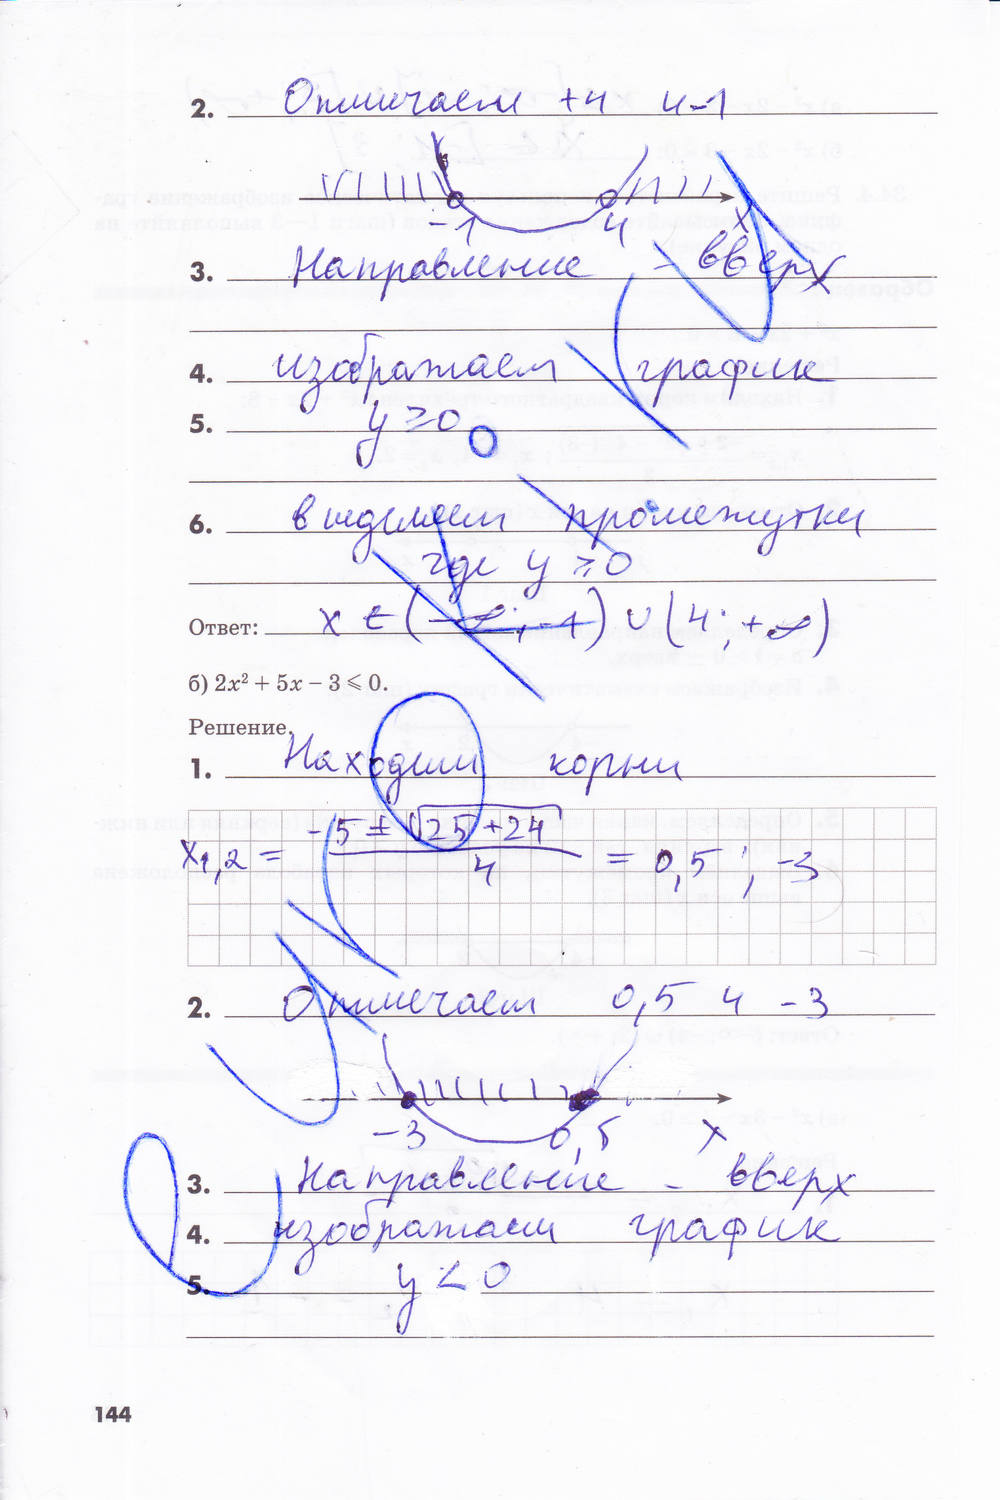 2. Отмечаем +4 и -1
-1 4 x
3. Направление - вверх
4. изображаем график
5. y ≥ 0
6. выделяем промежутки
где y ≥ 0
Ответ: x ∈ (-∞; -1) ∪ (4; +∞)
б) 2x² + 5x – 3 ⩽ 0.
Решение.
1. Находим корни
x1,2 = -5 ± √25 + 24 / 4 = 0,5 ; -3
2. Отмечаем 0,5 и -3
-3 0,5 x
3. Направление - вверх
4. изображаем график
5. y < 0
144